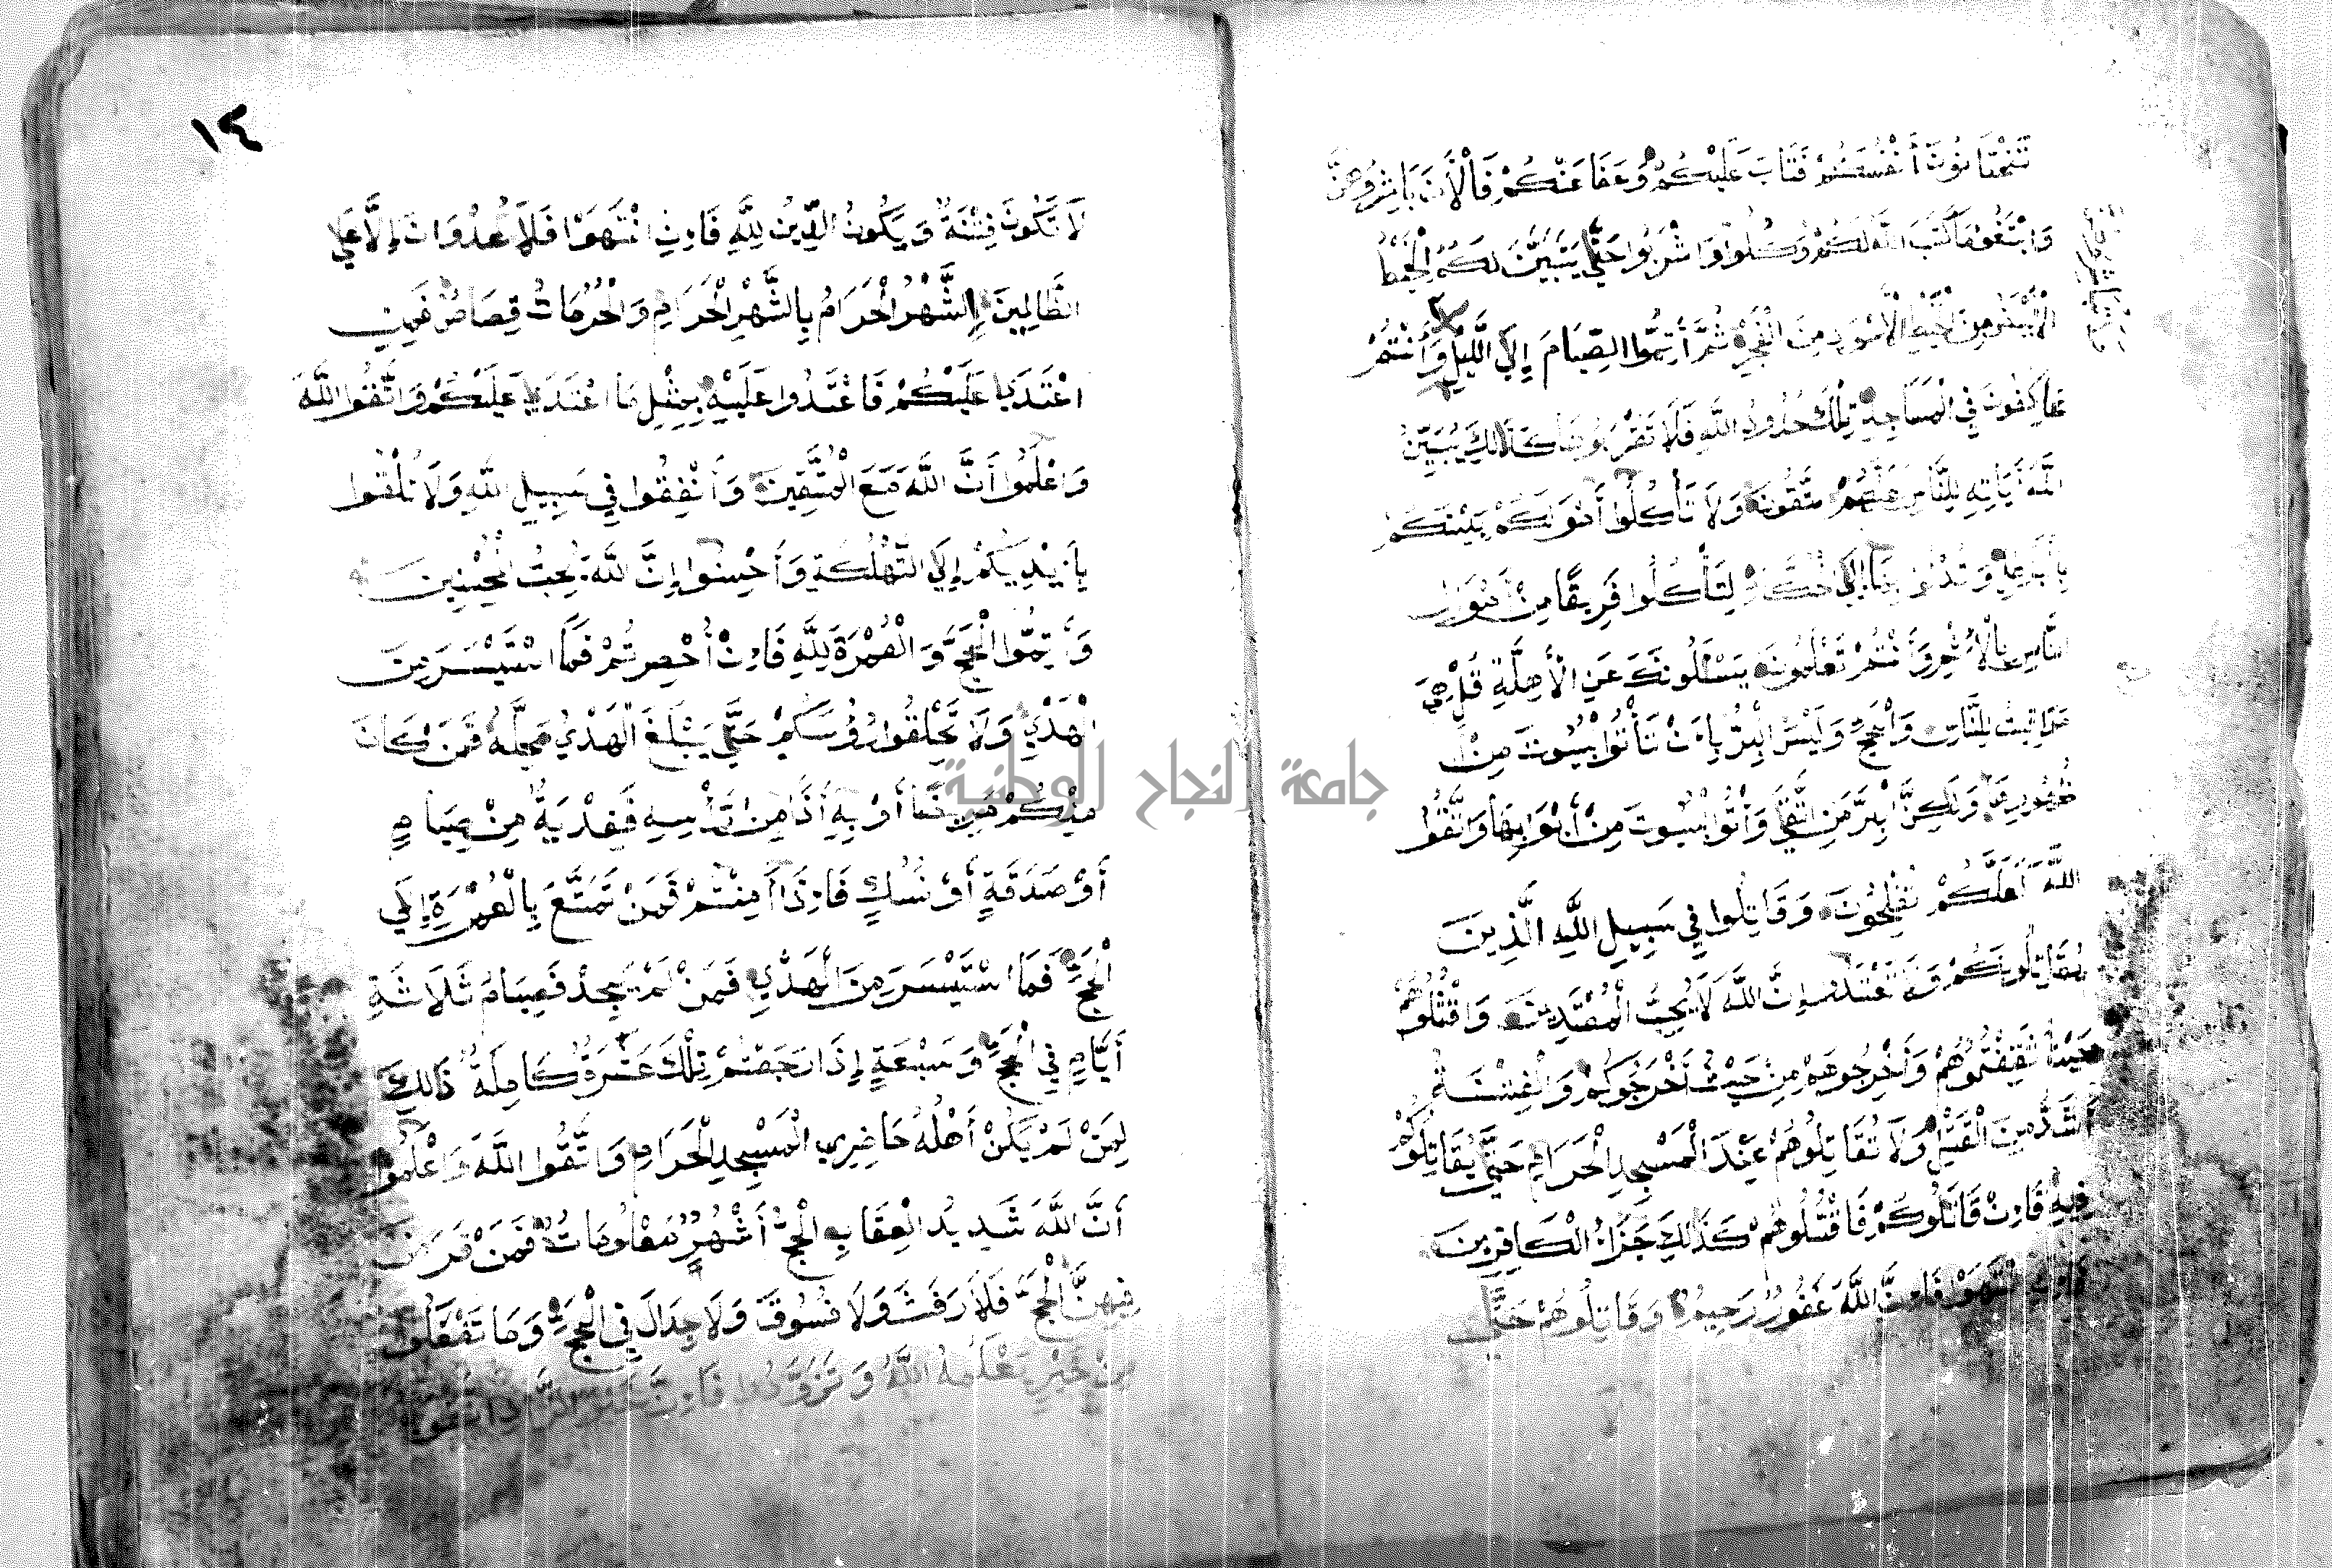 تَخْتَانُونَ أَنْفُسَكُمْ فَتَابَ عَلَيْكُمْ وَعَفَا عَنْكُمْ فَالْأَنَ بَاشِرُوهُنَّ
وَابْتَغُوا مَا كَتَبَ اللَّهُ لَكُمْ وَكُلُوا وَاشْرَبُوا حَتَّى يَتَبَيَّنَ لَكُمُ الْخَيْطُ
الْأَبْيَضُ مِنَ الْخَيْطِ الْأَسْوَدِ مِنَ الْفَجْرِ ثُمَّ أَتِمُّوا الصِّيَامَ إِلَى اللَّيْلِ وَأَنْتُمْ
عَاكِفُونَ فِي الْمَسَاجِدِ تِلْكَ حُدُودُ اللَّهِ فَلَا تَقْرَبُوهَا كَذَالِكَ يُبَيِّنُ
اللَّهُ ءَايَاتِهِ لِلنَّاسِ لَعَلَّهُمْ يَتَّقُونَ وَلَا تَأْكُلُوا أَمْوَالَكُمْ بَيْنَكُمْ
بِالْبَاطِلِ وَتُدْلُوا بِهَا إِلَى الْحُكَّامِ لِتَأْكُلُوا فَرِيقًا مِنْ أَمْوَالِ
النَّاسِ بِالْإِثْمِ وَأَنْتُمْ تَعْلَمُونَ يَسْـَٔلُونَكَ عَنِ الْأَهِلَّةِ قُلْ هِيَ
مَوَاقِيتُ لِلنَّاسِ وَالْحَجِّ وَلَيْسَ الْبِرُّ بِأَنْ تَأْتُوا الْبُيُوتَ مِنْ
ظُهُورِهَا وَلَكِنَّ الْبِرَّ مَنِ اتَّقَى وَأْتُوا الْبُيُوتَ مِنْ أَبْوَابِهَا وَاتَّقُوا
اللَّهَ لَعَلَّكُمْ تُفْلِحُونَ وَقَاتِلُوا فِي سَبِيلِ اللَّهِ الَّذِينَ
يُقَاتِلُونَكُمْ وَلَا تَعْتَدُوا إِنَّ اللَّهَ لَا يُحِبُّ الْمُعْتَدِينَ وَاقْتُلُوهُمْ
حَيْثُ ثَقِفْتُمُوهُمْ وَأَخْرِجُوهُمْ مِنْ حَيْثُ أَخْرَجُوكُمْ وَالْفِتْنَةُ
أَشَدُّ مِنَ الْقَتْلِ وَلَا تُقَاتِلُوهُمْ عِنْدَ الْمَسْجِدِ الْحَرَامِ حَتَّى يُقَاتِلُوكُمْ
فِيهِ فَإِنْ قَاتَلُوكُمْ فَاقْتُلُوهُمْ كَذَلِكَ جَزَاءُ الْكَافِرِينَ
فَإِنِ انْتَهَوْا فَإِنَّ اللَّهَ غَفُورٌ رَحِيمٌ وَقَاتِلُوهُمْ حَتَّى
١٤
لَا تَكُونَ فِتْنَةٌ وَيَكُونَ الدِّينُ لِلَّهِ فَإِنِ انْتَهَوْا فَلَا عُدْوَانَ إِلَّا عَلَى
الظَّالِمِينَ الشَّهْرُ الْحَرَامُ بِالشَّهْرِ الْحَرَامِ وَالْحُرُمَاتُ قِصَاصٌ فَمَنِ
اعْتَدَى عَلَيْكُمْ فَاعْتَدُوا عَلَيْهِ بِمِثْلِ مَا اعْتَدَى عَلَيْكُمْ وَاتَّقُوا اللَّهَ
وَاعْلَمُوا أَنَّ اللَّهَ مَعَ الْمُتَّقِينَ وَأَنْفِقُوا فِي سَبِيلِ اللَّهِ وَلَا تُلْقُوا
بِأَيْدِيكُمْ إِلَى التَّهْلُكَةِ وَأَحْسِنُوا إِنَّ اللَّهَ يُحِبُّ الْمُحْسِنِينَ
وَأَتِمُّوا الْحَجَّ وَالْعُمْرَةَ لِلَّهِ فَإِنْ أُحْصِرْتُمْ فَمَا اسْتَيْسَرَ مِنَ
الْهَدْيِ وَلَا تَحْلِقُوا رُؤُسَكُمْ حَتَّى يَبْلُغَ الْهَدْيُ مَحِلَّهُ فَمَنْ كَانَ
مِنْكُمْ مَرِيضًا أَوْ بِهِ أَذًا مِنْ رَأْسِهِ فَفِدْيَةٌ مِنْ صِيَامٍ
أَوْ صَدَقَةٍ أَوْ نُسُكٍ فَإِذَا أَمِنْتُمْ فَمَنْ تَمَتَّعَ بِالْعُمْرَةِ إِلَى
الْحَجِّ فَمَا اسْتَيْسَرَ مِنَ الْهَدْيِ فَمَنْ لَمْ يَجِدْ فَصِيَامُ ثَلَاثَةِ
أَيَّامٍ فِي الْحَجِّ وَسَبْعَةٍ إِذَا رَجَعْتُمْ تِلْكَ عَشَرَةٌ كَامِلَةٌ ذَالِكَ
لِمَنْ لَمْ يَكُنْ أَهْلُهُ حَاضِرِي الْمَسْجِدِ الْحَرَامِ وَاتَّقُوا اللَّهَ وَاعْلَمُوا
أَنَّ اللَّهَ شَدِيدُ الْعِقَابِ الْحَجُّ أَشْهُرٌ مَعْلُومَاتٌ فَمَنْ فَرَضَ
فِيهِنَّ الْحَجَّ فَلَا رَفَثَ وَلَا فُسُوقَ وَلَا جِدَالَ فِي الْحَجِّ وَمَا تَفْعَلُوا
مِنْ خَيْرٍ يَعْلَمْهُ اللَّهُ وَتَزَوَّدُوا فَإِنَّ خَيْرَ
جامعة النجاح الوطنية